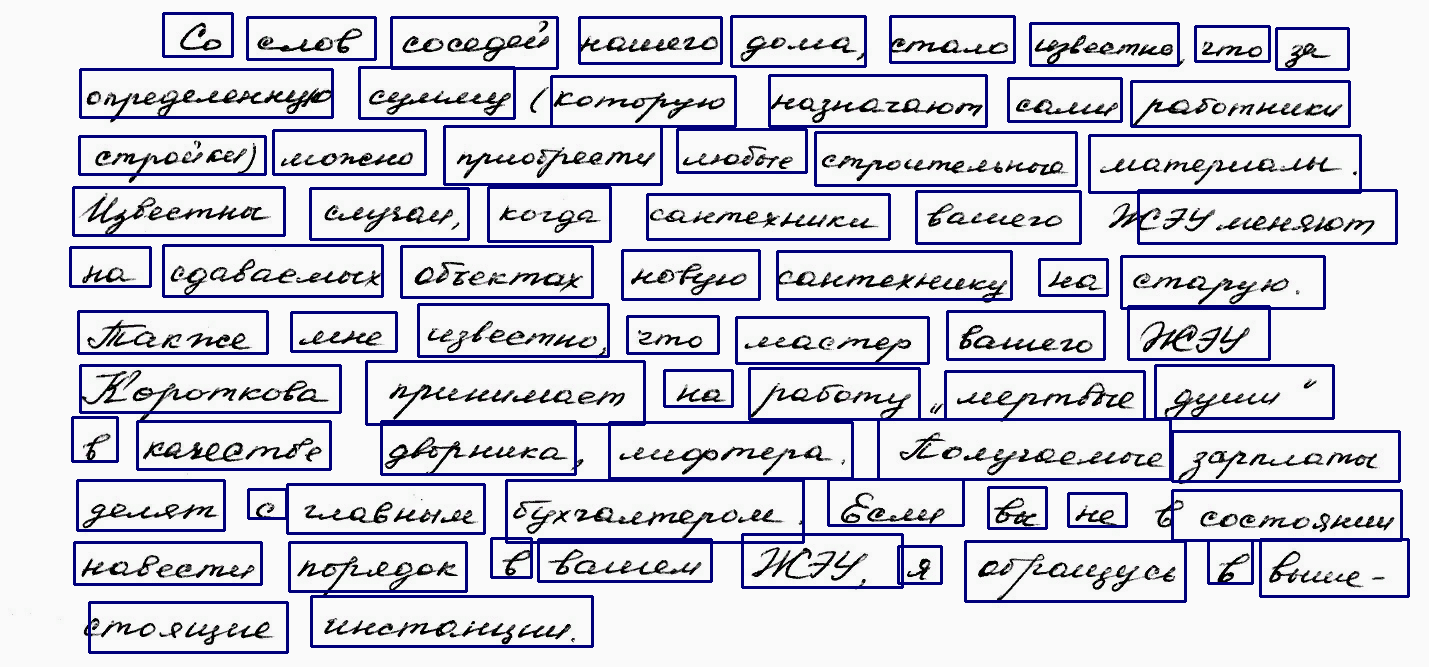 Со слов соседей нашего дома, стало известно, что за
определенную сумму (которую назначают сами работники
стройки) можно приобрести любые строительные материалы.
Известны случаи, когда сантехники вашего ЖСЭУ меняют
на сдаваемых объектах новую сантехнику на старую.
Также мне известно, что мастер вашего ЖСЭУ
Короткова принимает на работу „мертвые души“
в качестве дворника, лифтера. Получаемые зарплаты
делят с главным бухгалтером. Если вы не в состоянии
навести порядок в вашем ЖСЭУ, я обращусь в выше-
стоящие инстанции.